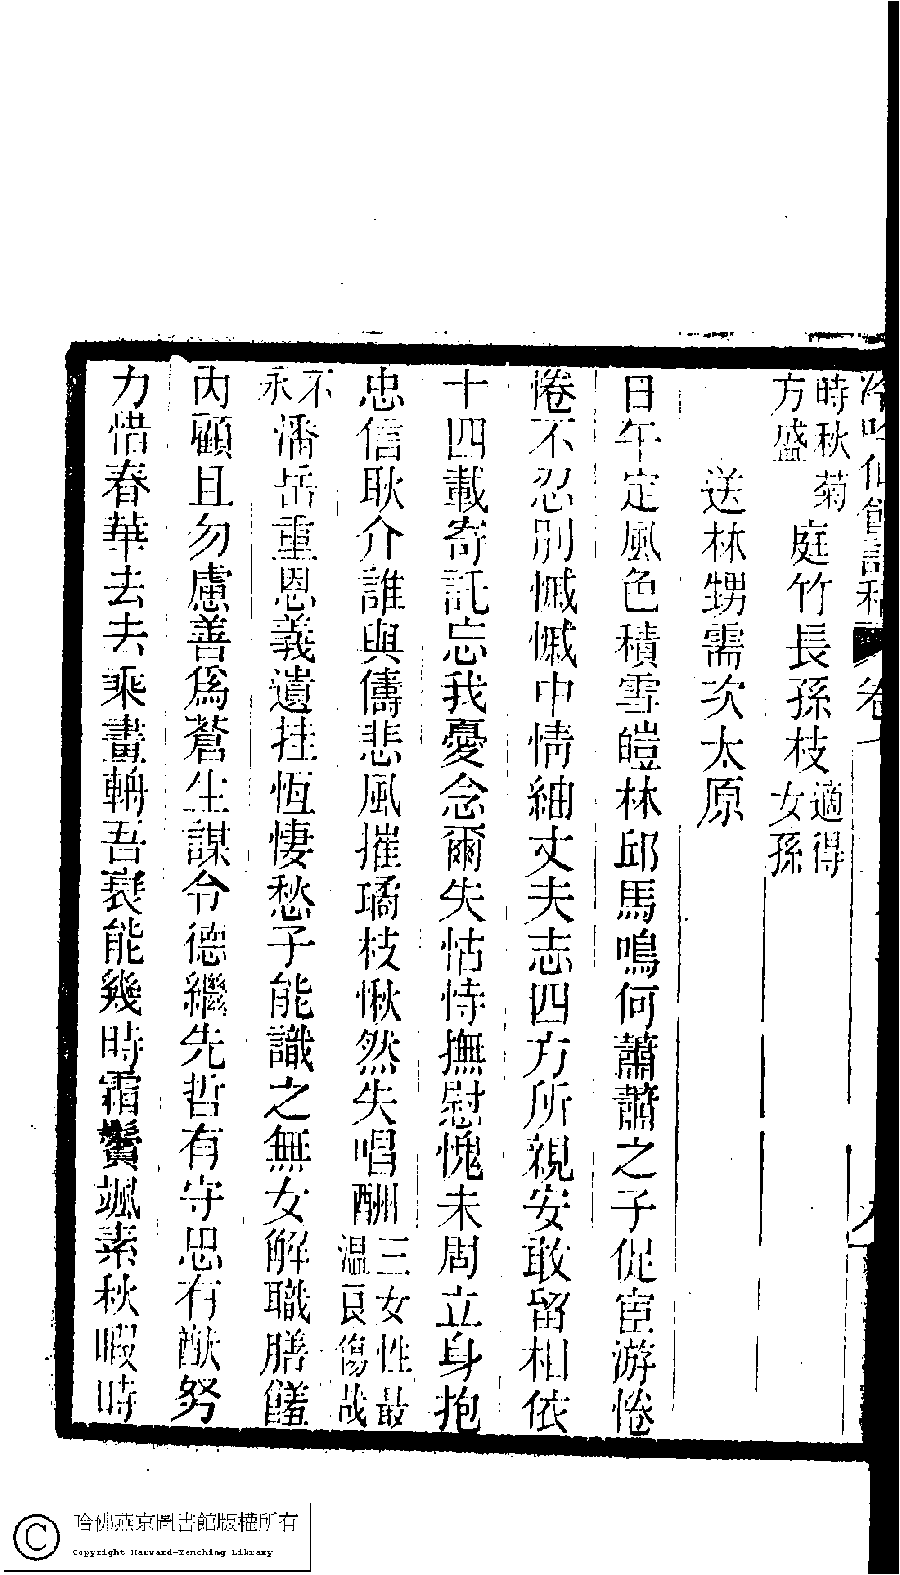 冷吟仙館詩稿 卷
時秋菊方盛庭竹長孫枝適得女孫
送林甥需次太原
日午定風色積雪皚林邱馬鳴何蕭蕭之子促宦游惓
惓不忍別慽慽中情紬丈夫志四方所親安敢留相依
十四載寄託忘我憂念爾失怙恃撫慰愧未周立身抱
忠信耿介誰與儔悲風摧璚枝愀然失唱酬三女性最溫良傷哉
不永潘岳重恩義遺挂恆悽愁子能識之無女解職膳饈
內顧且勿慮善為蒼生謀令德繼先哲有守思有猷努
力惜春華去去乘畫輈吾衰能幾時霜鬢颯素秋暇時
哈佛燕京圖書館版權所有
Copyright Harvard-Yenching Library